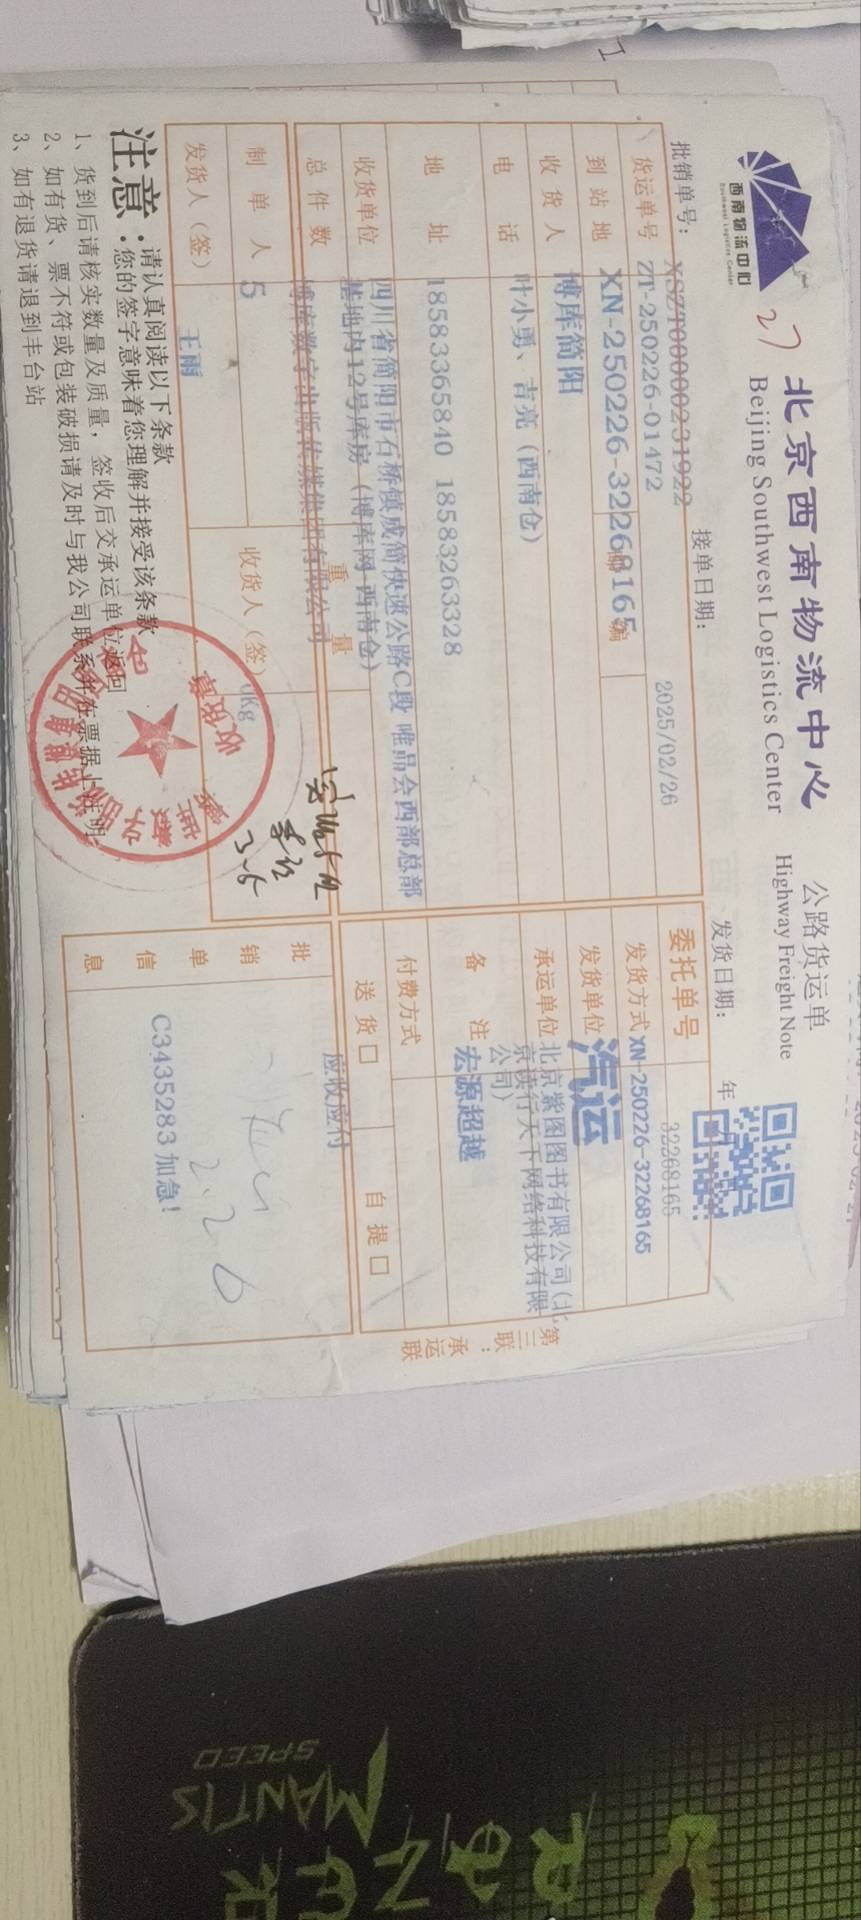 西南物流中心
Southwest Logistics Center
27
北京西南物流中心
Beijing Southwest Logistics Center
公路货运单
Highway Freight Note
批销单号：XSZT00000231922
接单日期：
2025/02/26
发货日期：
年
货运单号 ZT-250226-01472
委托单号 32268165
到站地 XN-250226-32268165
邮编
发货方式 XN-250226-32268165
收货人 博库简阳
发货单位 汽运
电话 叶小勇、吉亮（西南仓）
承运单位 北京紫图图书有限公司(北
京读行天下网络科技有限
公司)
地址 18583365840 18583263328
备注 宏源超越
收货单位 四川省简阳市石桥镇成简快速公路C段 唯品会西部总部
基地内12号库房（博库网 西南仓）
付费方式
总件数 博库数字出版传媒集团有限公司
重量
送货□
自提□
应收应付
制单人 5
收货人（签）
0Kg
3-5
发货人（签） 王雨
批销单信息
2.26
C3435283 加急!
注意：
请认真阅读以下条款
您的签字意味着您理解并接受该条款
1、货到后请核实数量及质量，签收后交承运单位返回
2、如有货、票不符或包装破损请及时与我公司联系并在票据上注明
3、如有退货请退到丰台站
收货章
第三联：承运联
SPEED
MANTIS